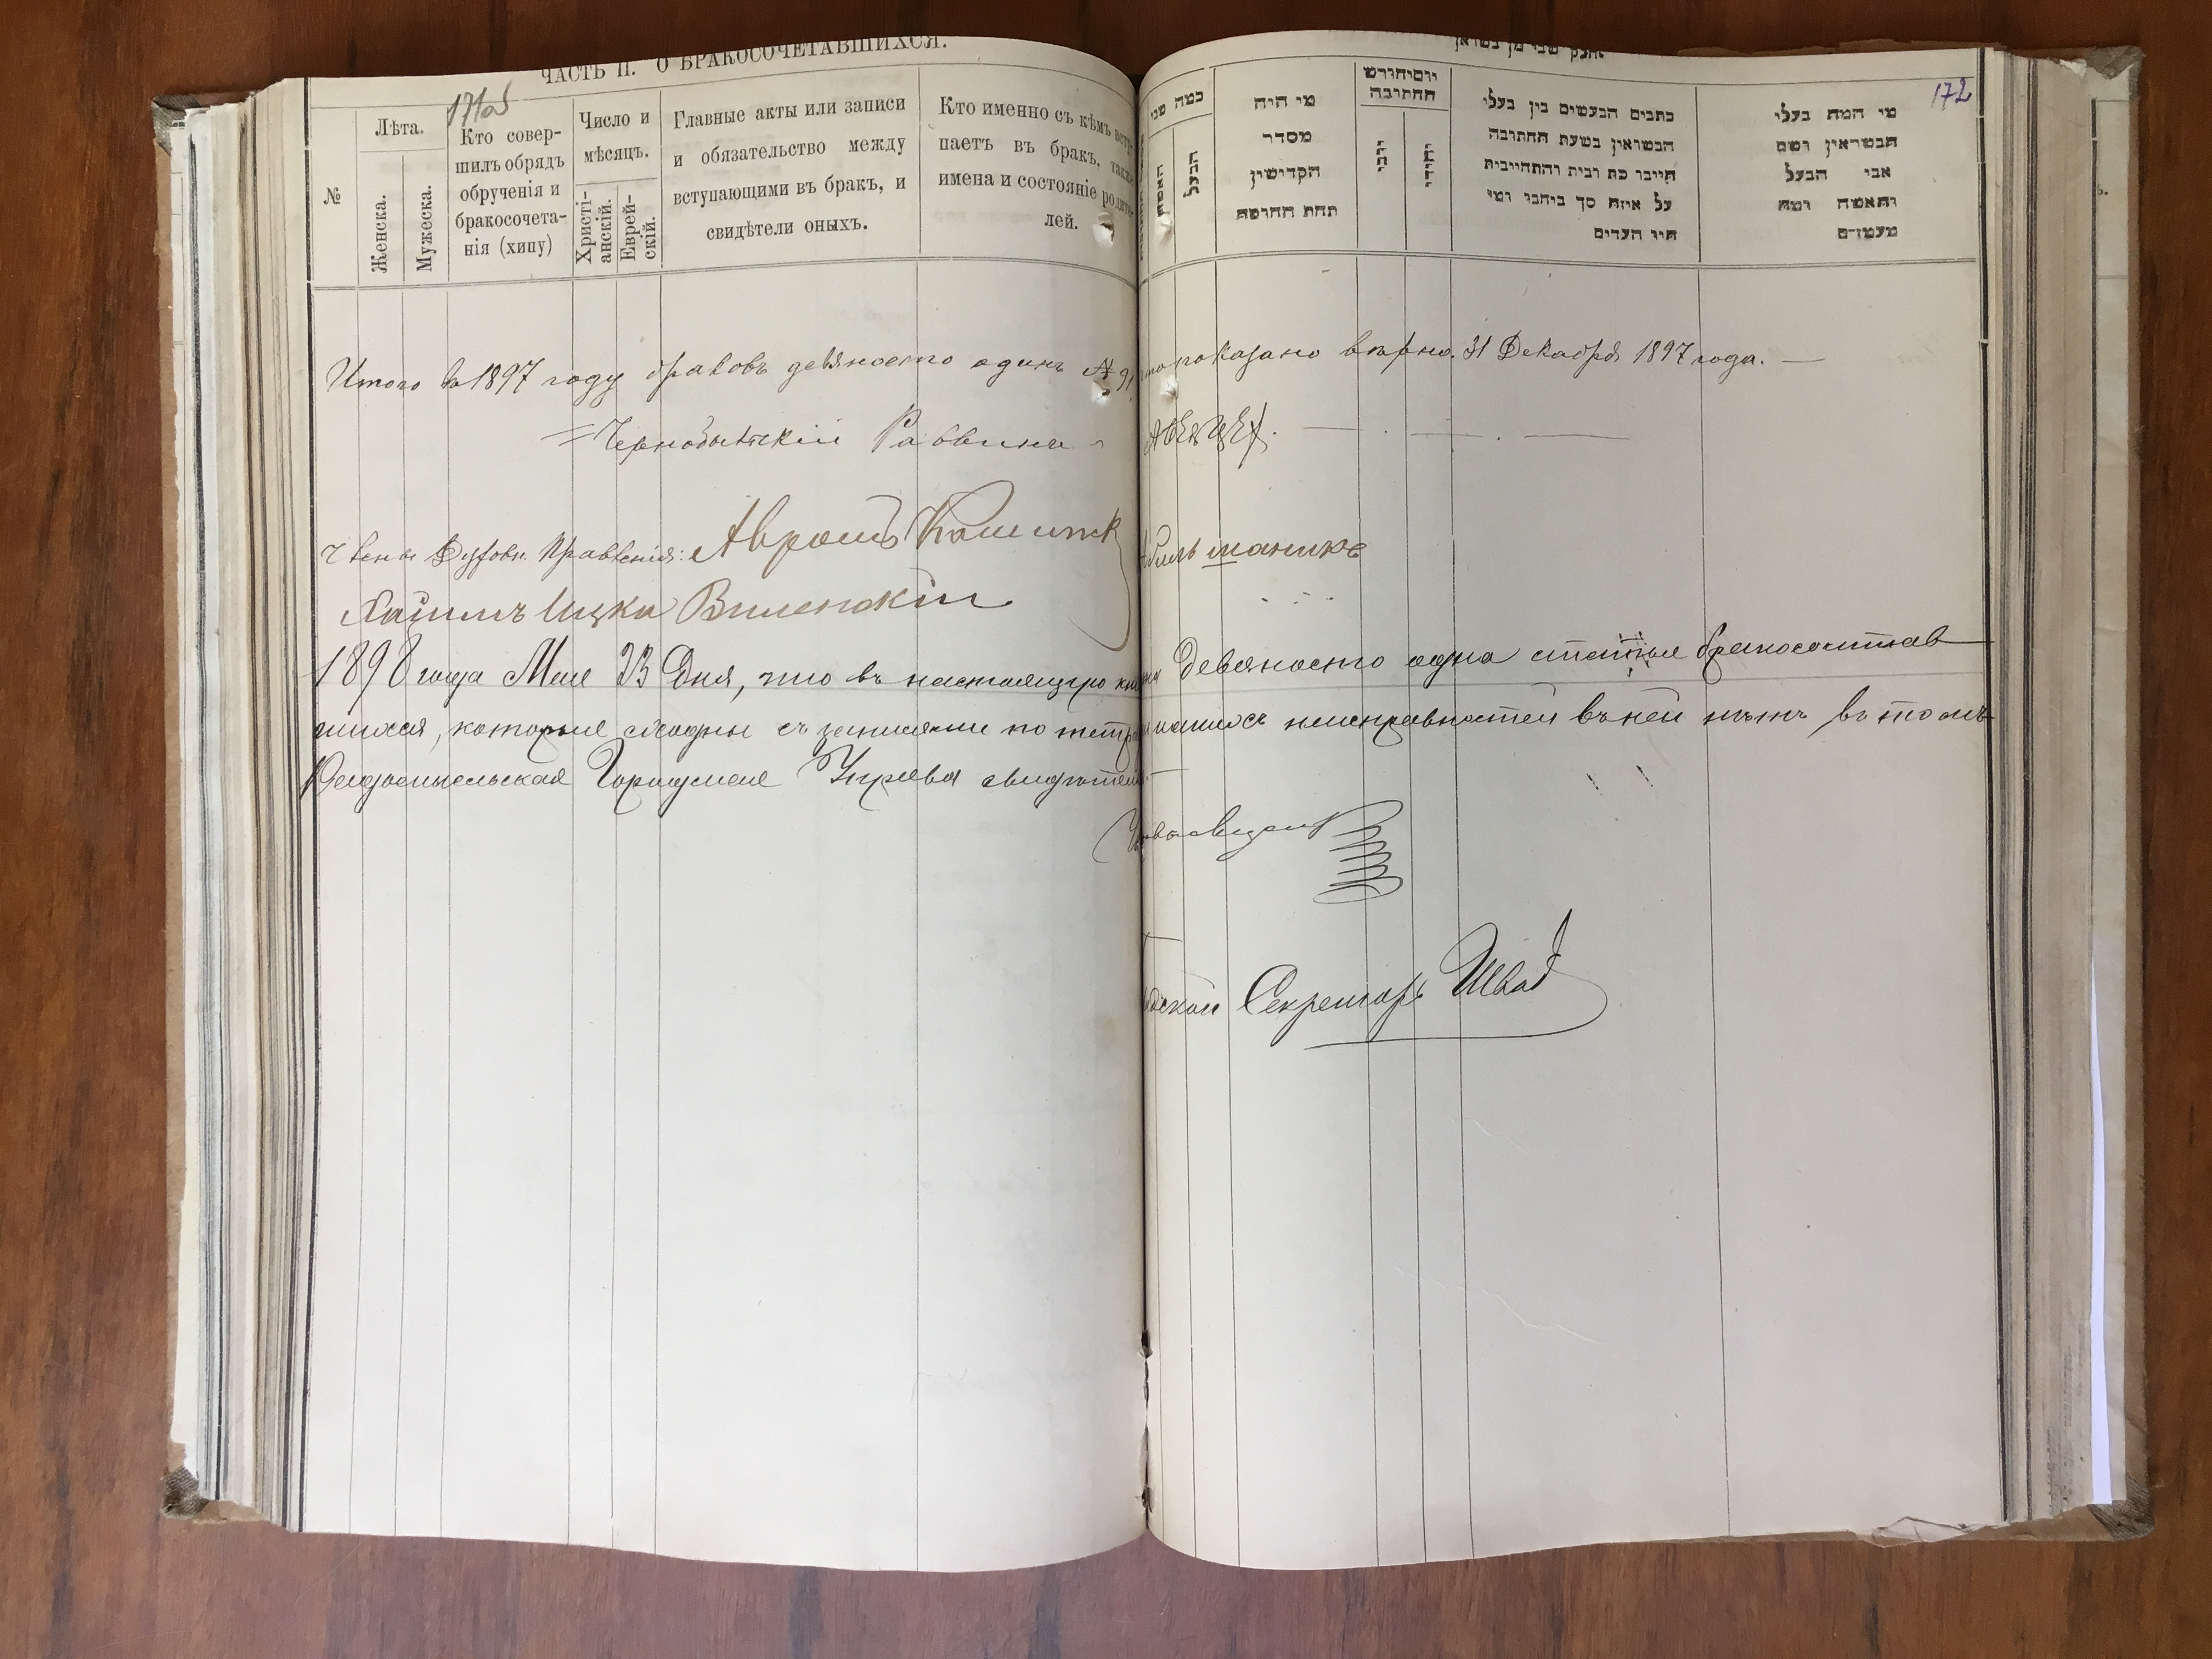 ЧАСТЬ II. О БРАКОСОЧЕТАВШИХСЯ.
171об
№
Лѣта.
Женска.
Мужеска.
Кто совер-
шилъ обрядъ
обрученія и
бракосочета-
нія (хипу)
Число и
мѣсяцъ.
Христі-
анскій.
Еврей-
скій.
Главные акты или записи
и обязательство между
вступающими въ бракъ, и
свидѣтели оныхъ.
Кто именно съ кѣмъ всту-
паетъ въ бракъ, также
имена и состояніе родите-
лей.
חלק שני מן נשואין
172
כמה שני
האשה
הבעל
מי היה
מסדר
הקדישין
תחת החופה
יום וחודש
החתובה
נוצרי
יהודי
כתבים הנעשים בין בעלי
הנשואין בשעת החתובה
על איזה סך ביחבי ומי
היו העדים
מי המה בעלי
הנשואין ושם
אבי הבעל
והאשה ומה
מעמדם
Итого въ 1897 году браковъ девяносто одинъ № 91 что показано вѣрно. 31 Декабря 1897 года. —
Чернобыльскій Раввинъ
Члены Духовн. Правленія: Авромъ
Хаимъ Ицко Виленскій
1898 года Мая 23 Дня, что въ настоящую девяносто одна статья бракосочетав
шихся, которые сходны съ записями по неисправностей въ ней нѣтъ въ томъ
Радомысльская Городская Управа
Секретарь